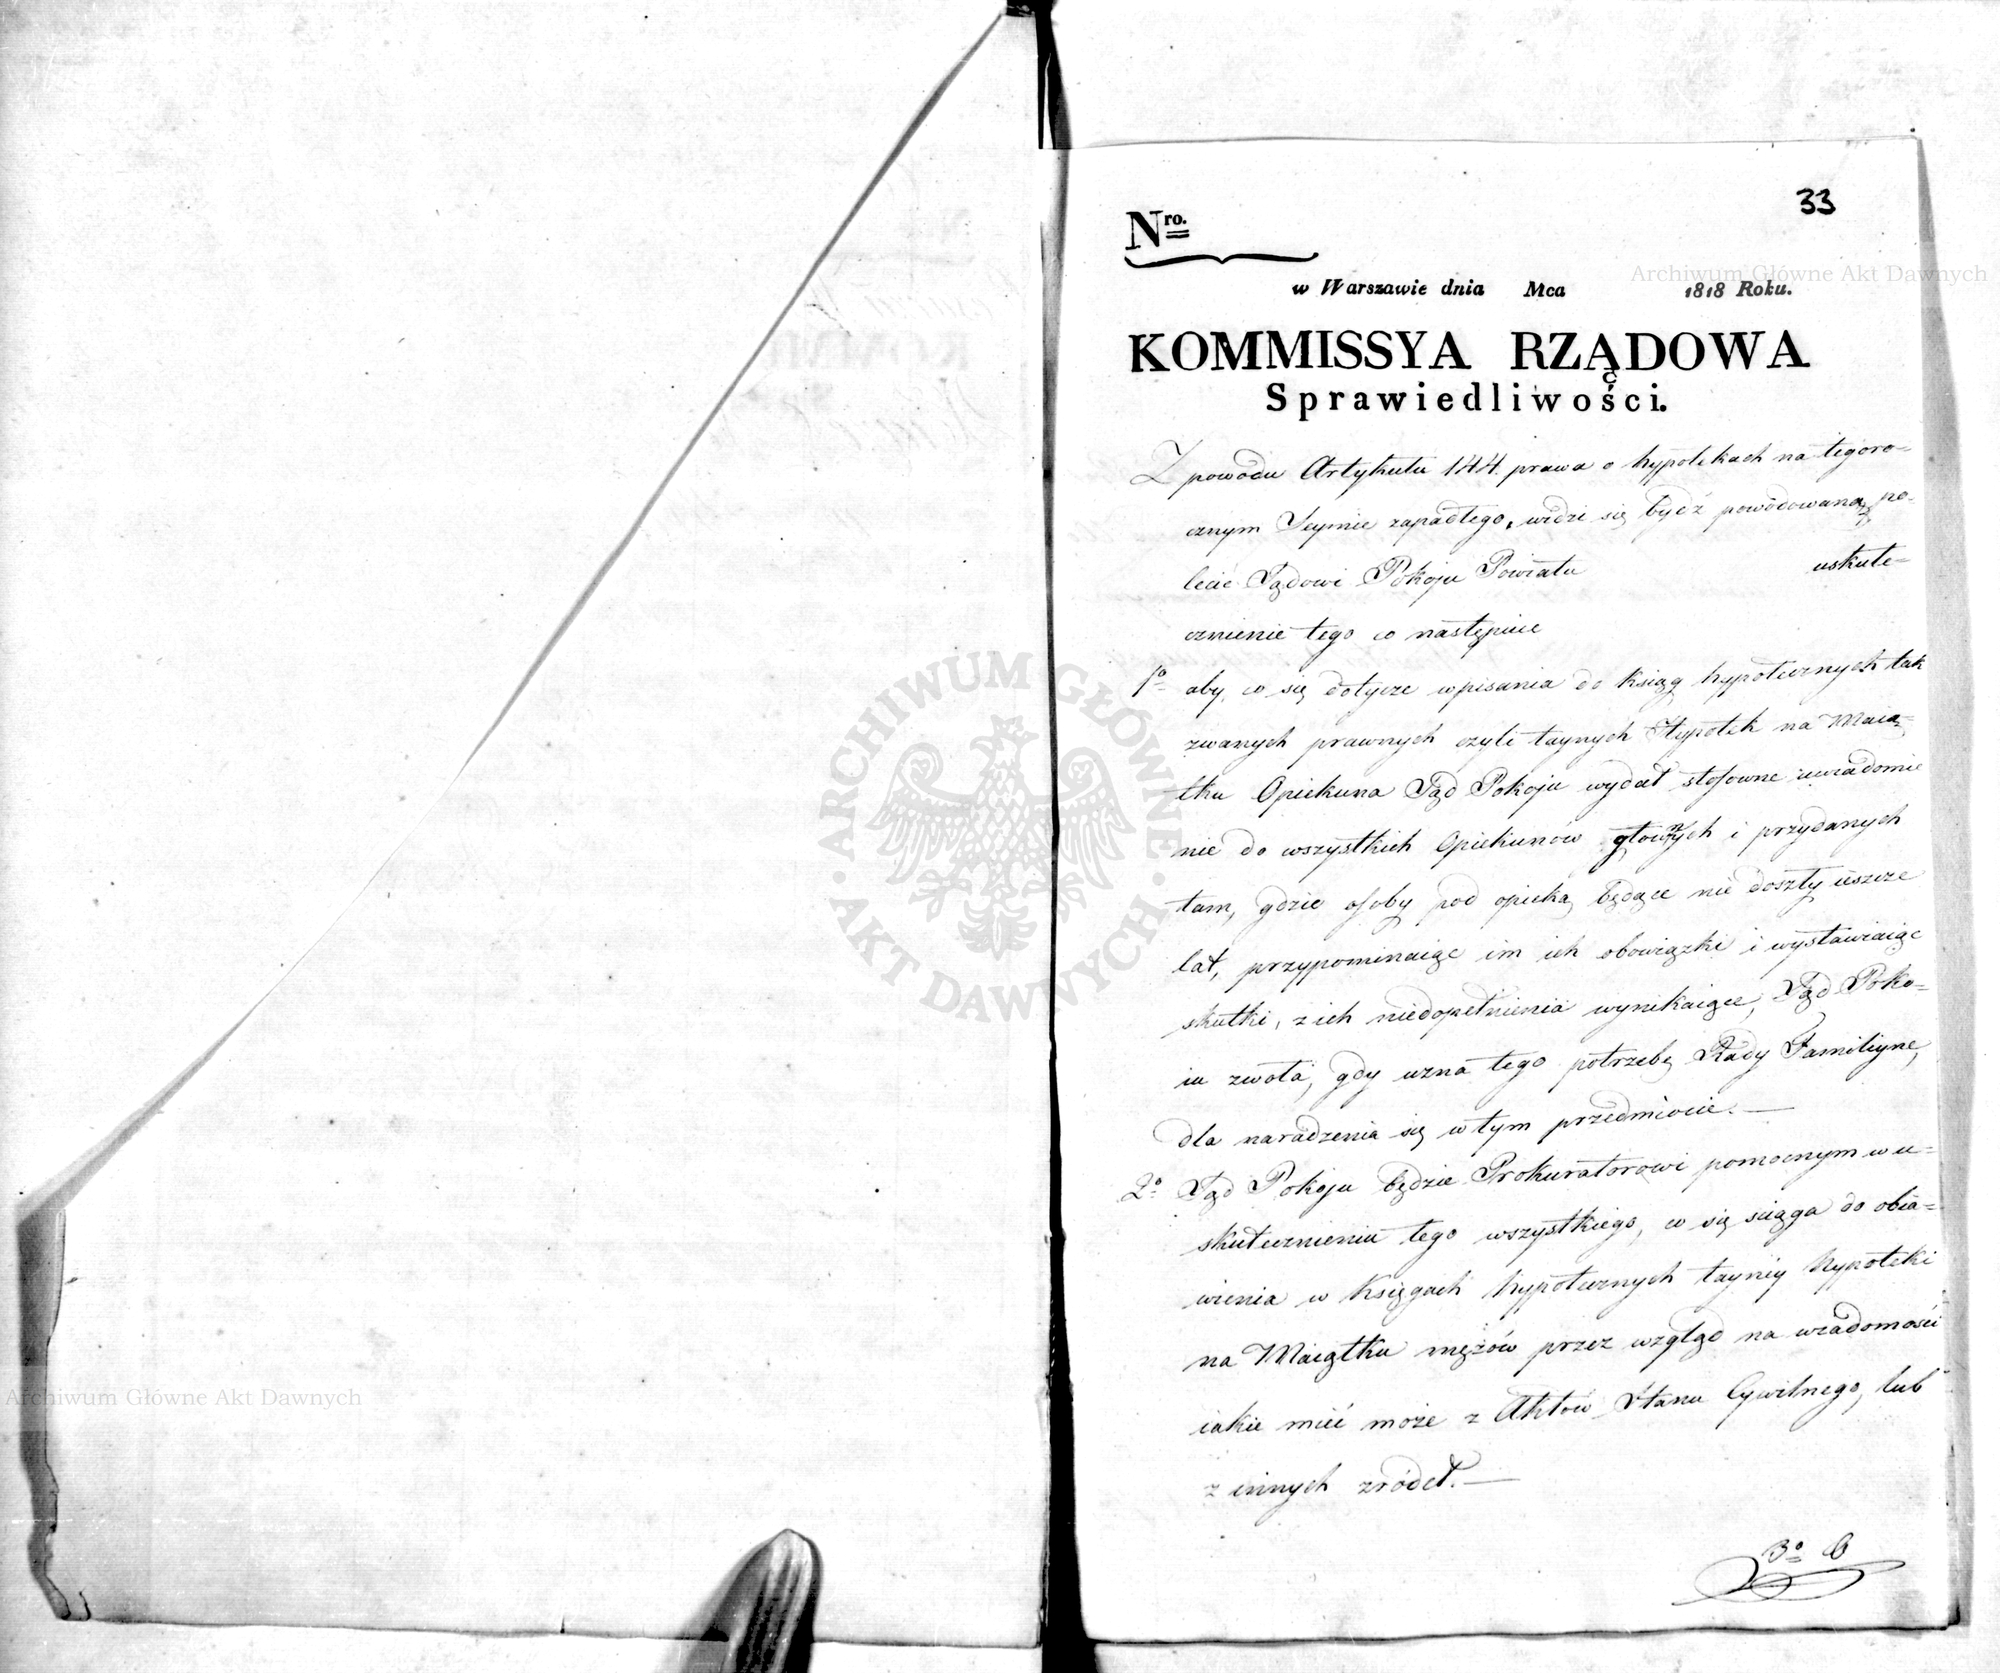 33
Nro.
w Warszawie dnia Mca 1818 Roku.
KOMMISSYA RZĄDOWA
Sprawiedliwości.
Z powodu Artykułu 144. prawa o hypotekach na tegoro-
cznym Seymie zapadłego, widzi się bydź powodowaną po-
lecić Sądowi Pokoju Powiatu uskute-
cznienie tego co następuie
1o aby, co się dotycze wpisania do ksiąg hypotecznych tak
zwanych prawnych czyli taynych Hypotek na Maią-
tku Opiekuna Sąd Pokoju wydał stosowne uwiadomie
nie do wszystkich Opiekunów głównych i przydanych
tam, gdzie osoby pod opieką będące nie doszły ieszcze
lat, przypominaiąc im ich obowiązki i wystawiaiąc
skutki, z ich niedopełnienia wynikaiące, Sąd Poko-
iu zwoła, gdy uzna tego potrzebę Rady Familiyne,
dla naradzenia się w tym przedmiocie. —
2o Sąd Pokoju będzie Prokuratorowi pomocnym w u-
skutecznieniu tego wszystkiego, co się sciąga do obia-
wienia w Księgach hypotecznych tayney hypoteki
na Maiątku mężów przez wzgląd na wiadomości
iakie mieć może z Aktów Stanu Cywilnego, lub
z innych zródeł. —
3o
ARCHIWUM GŁÓWNE AKT DAWNYCH
Archiwum Główne Akt Dawnych
Archiwum Główne Akt Dawnych